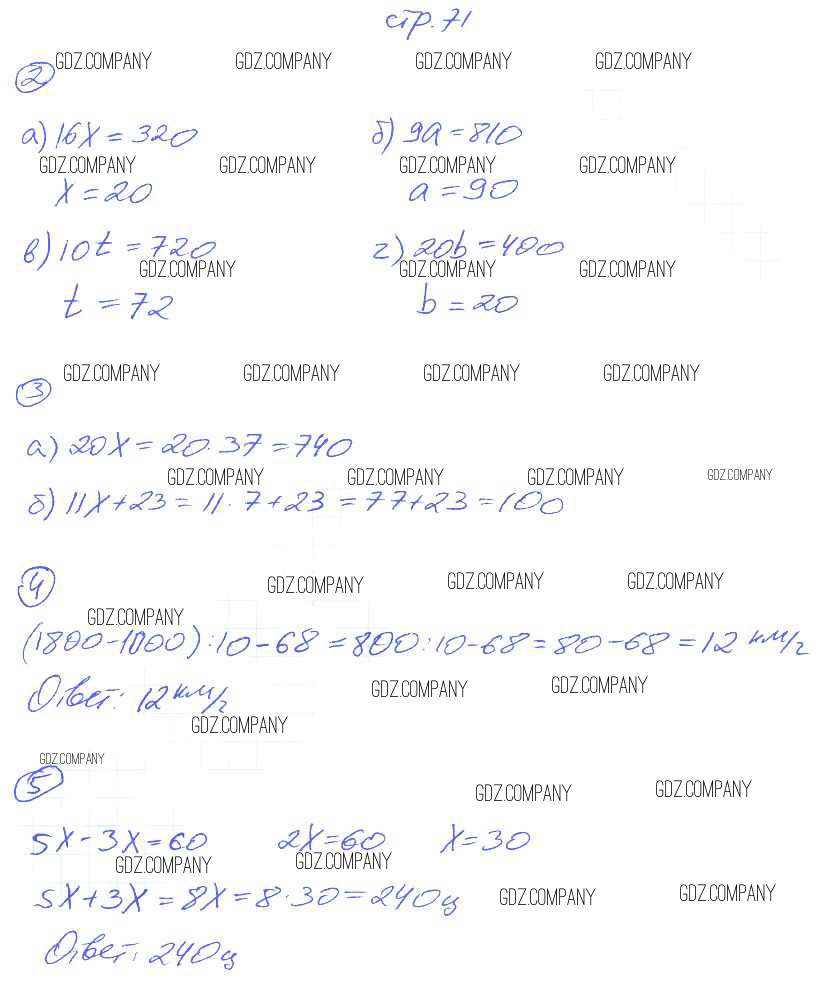 стр. 71
GDZ.COMPANY GDZ.COMPANY GDZ.COMPANY GDZ.COMPANY
2
а) 16x = 320 б) 9a = 810
GDZ.COMPANY GDZ.COMPANY GDZ.COMPANY GDZ.COMPANY
x = 20 a = 90
в) 10t = 720 г) 20b = 400
GDZ.COMPANY GDZ.COMPANY GDZ.COMPANY
t = 72 b = 20
GDZ.COMPANY GDZ.COMPANY GDZ.COMPANY GDZ.COMPANY
3
а) 20x = 20·37 = 740
GDZ.COMPANY GDZ.COMPANY GDZ.COMPANY GDZ.COMPANY
б) 11x+23 = 11·7+23 = 77+23 = 100
4
GDZ.COMPANY GDZ.COMPANY GDZ.COMPANY
GDZ.COMPANY
(1800-1000):10-68 = 800:10-68 = 80-68 = 12 км/ч
GDZ.COMPANY GDZ.COMPANY
Ответ: 12 км/ч
GDZ.COMPANY
GDZ.COMPANY
5
GDZ.COMPANY GDZ.COMPANY
5x-3x=60 2x=60 x=30
GDZ.COMPANY GDZ.COMPANY
5x+3x = 8x = 8·30 = 240 ц
GDZ.COMPANY GDZ.COMPANY
Ответ: 240 ц